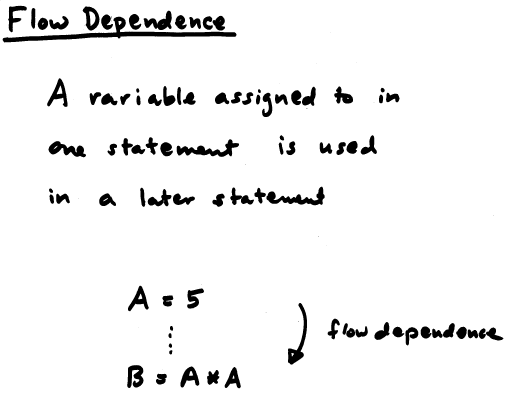 Flow Dependence
A variable assigned to in
one statement is used
in a later statement
A = 5
flow dependence
B = A * A